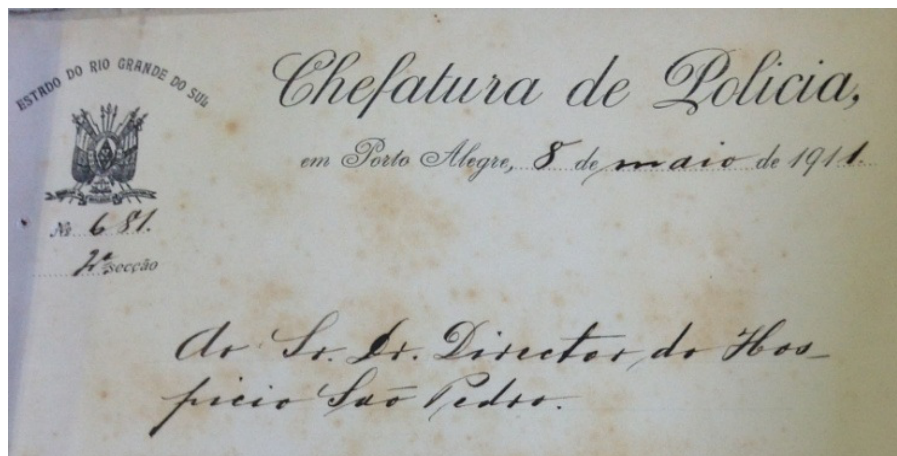 ESTADO DO RIO GRANDE DO SUL
Chefatura de Policia,
em Porto Alegre, 8 de maio de 1911.
Nº 681.
2ª secção
Ao Sr. Dr. Director do Hos-
picio São Pedro.